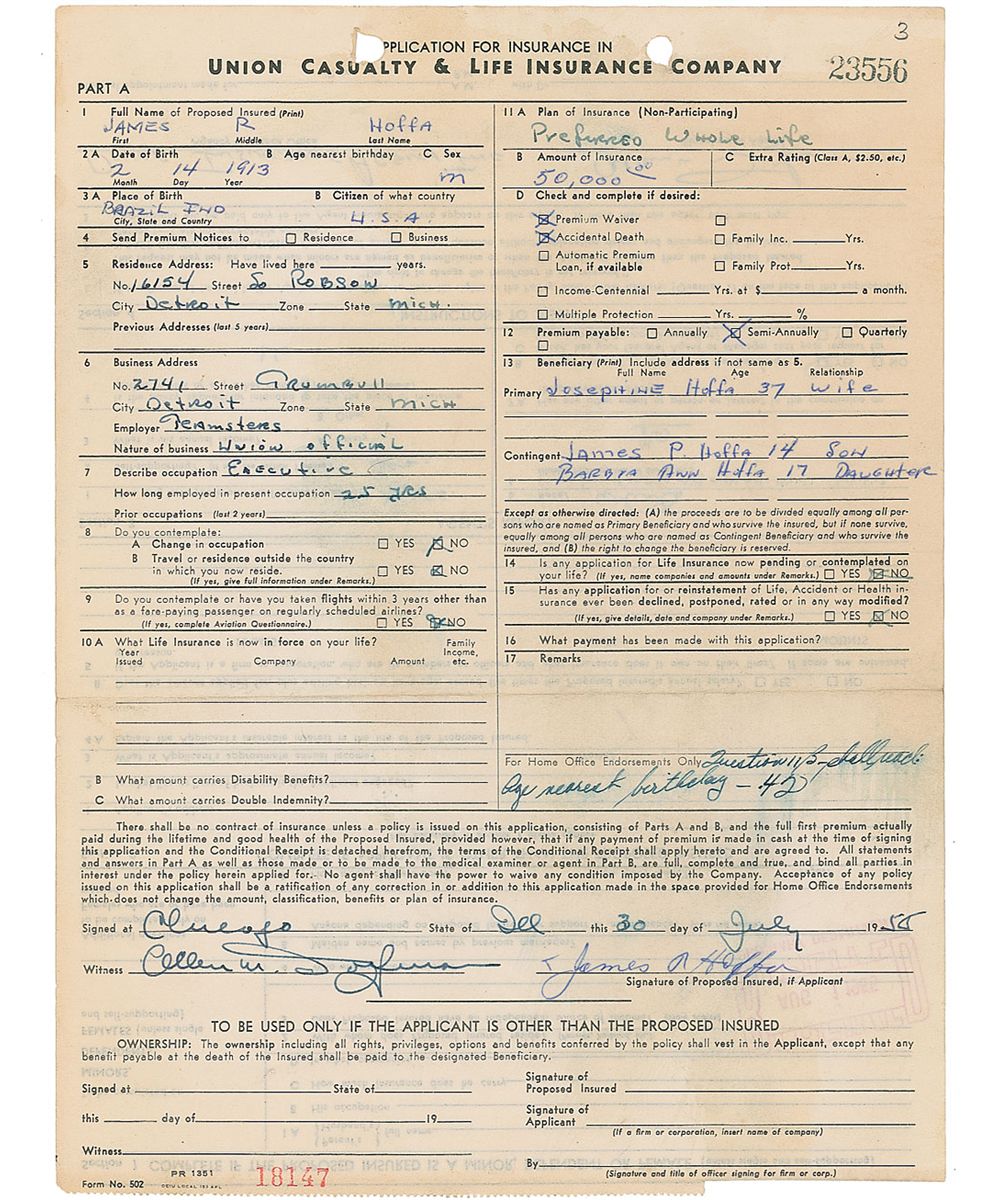 3
APPLICATION FOR INSURANCE IN
UNION CASUALTY & LIFE INSURANCE COMPANY
23556
PART A
1 Full Name of Proposed Insured (Print)
JAMES R HOFFA
First Middle Last Name
2 A Date of Birth B Age nearest birthday C Sex
2 14 1913 m
Month Day Year
3 A Place of Birth B Citizen of what country
BRAZIL IND U.S.A.
City, State and Country
4 Send Premium Notices to ☐ Residence ☐ Business
5 Residence Address: Have lived here ______ years.
No. 16154 Street So ROBSON
City Detroit Zone ____ State Mich.
Previous Addresses (last 5 years)
6 Business Address
No. 2741 Street Trumbull
City Detroit Zone ____ State Mich
Employer Teamsters
Nature of business Union official
7 Describe occupation Executive
How long employed in present occupation 25 yrs
Prior occupations (last 2 years)
8 Do you contemplate:
A Change in occupation ☐ YES ☒ NO
B Travel or residence outside the country
in which you now reside. ☐ YES ☒ NO
(If yes, give full information under Remarks.)
9 Do you contemplate or have you taken flights within 3 years other than
as a fare-paying passenger on regularly scheduled airlines?
(If yes, complete Aviation Questionnaire.) ☐ YES ☒ NO
10 A What Life Insurance is now in force on your life? Family
Year Income,
Issued Company Amount etc.
B What amount carries Disability Benefits?
C What amount carries Double Indemnity?
11 A Plan of Insurance (Non-Participating)
Preferred Whole Life
B Amount of Insurance C Extra Rating (Class A, $2.50, etc.)
50,000 00
D Check and complete if desired:
☒ Premium Waiver ☐
☒ Accidental Death ☐ Family Inc. ______ Yrs.
☐ Automatic Premium
Loan, if available ☐ Family Prot. ______ Yrs.
☐ Income-Centennial ______ Yrs. at $ ______ a month.
☐ Multiple Protection ______ Yrs. ______ %
12 Premium payable: ☐ Annually ☒ Semi-Annually ☐ Quarterly
☐
13 Beneficiary (Print) Include address if not same as 5.
Full Name Age Relationship
Primary Josephine Hoffa 37 wife
Contingent James P. Hoffa 14 Son
Barbra Ann Hoffa 17 Daughter
Except as otherwise directed: (A) the proceeds are to be divided equally among all per-
sons who are named as Primary Beneficiary and who survive the insured, but if none survive,
equally among all persons who are named as Contingent Beneficiary and who survive the
insured, and (B) the right to change the beneficiary is reserved.
14 Is any application for Life Insurance now pending or contemplated on
your life? (If yes, name companies and amounts under Remarks.) ☐ YES ☒ NO
15 Has any application for or reinstatement of Life, Accident or Health in-
surance ever been declined, postponed, rated or in any way modified?
(If yes, give details, date and company under Remarks.) ☐ YES ☒ NO
16 What payment has been made with this application?
17 Remarks
For Home Office Endorsements Only Question 11 B - shall read:
Age nearest birthday - 42
There shall be no contract of insurance unless a policy is issued on this application, consisting of Parts A and B, and the full first premium actually
paid during the lifetime and good health of the Proposed Insured, provided however, that if any payment of premium is made in cash at the time of signing
this application and the Conditional Receipt is detached herefrom, the terms of the Conditional Receipt shall apply hereto and are agreed to. All statements
and answers in Part A as well as those made or to be made to the medical examiner or agent in Part B, are full, complete and true, and bind all parties in
interest under the policy herein applied for. No agent shall have the power to waive any condition imposed by the Company. Acceptance of any policy
issued on this application shall be a ratification of any correction in or addition to this application made in the space provided for Home Office Endorsements
which does not change the amount, classification, benefits or plan of insurance.
Signed at Chicago State of Ill this 30 day of July 19 55
Witness Allen M. Dorfman James R Hoffa
Signature of Proposed Insured, if Applicant
TO BE USED ONLY IF THE APPLICANT IS OTHER THAN THE PROPOSED INSURED
OWNERSHIP: The ownership including all rights, privileges, options and benefits conferred by the policy shall vest in the Applicant, except that any
benefit payable at the death of the Insured shall be paid to the designated Beneficiary.
Signed at ______ State of ______ Signature of
Proposed Insured
this ______ day of ______ 19__ Signature of
Applicant
(If a firm or corporation, insert name of company)
Witness ______ By
(Signature and title of officer signing for firm or corp.)
Form No. 502 PR 1351 18147